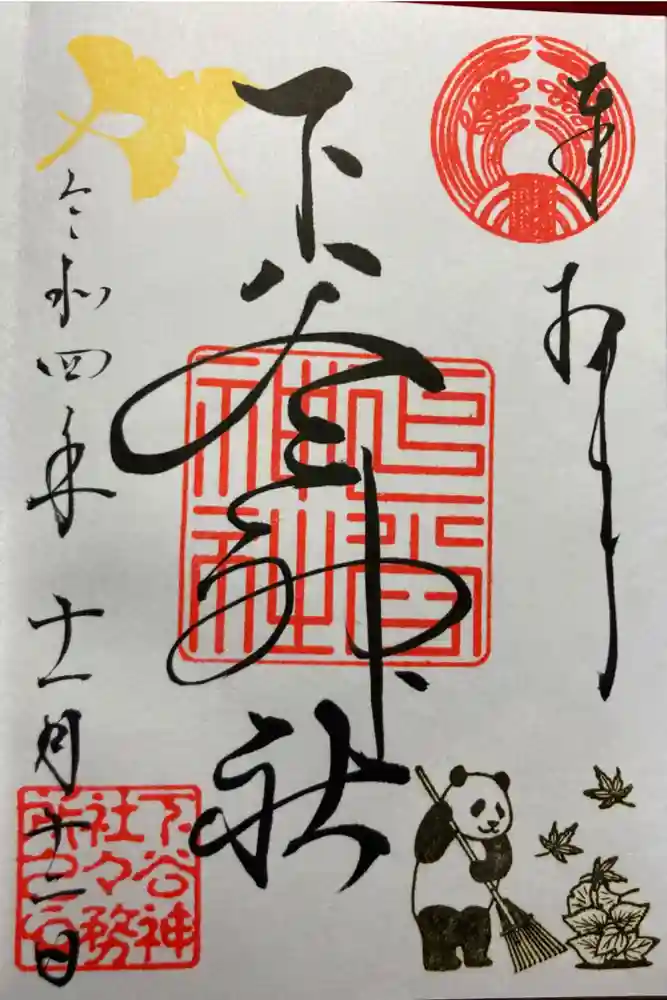 奉拝
下谷神社
下谷神社
令和四年十一月十二日
下谷神
社々務
所之印